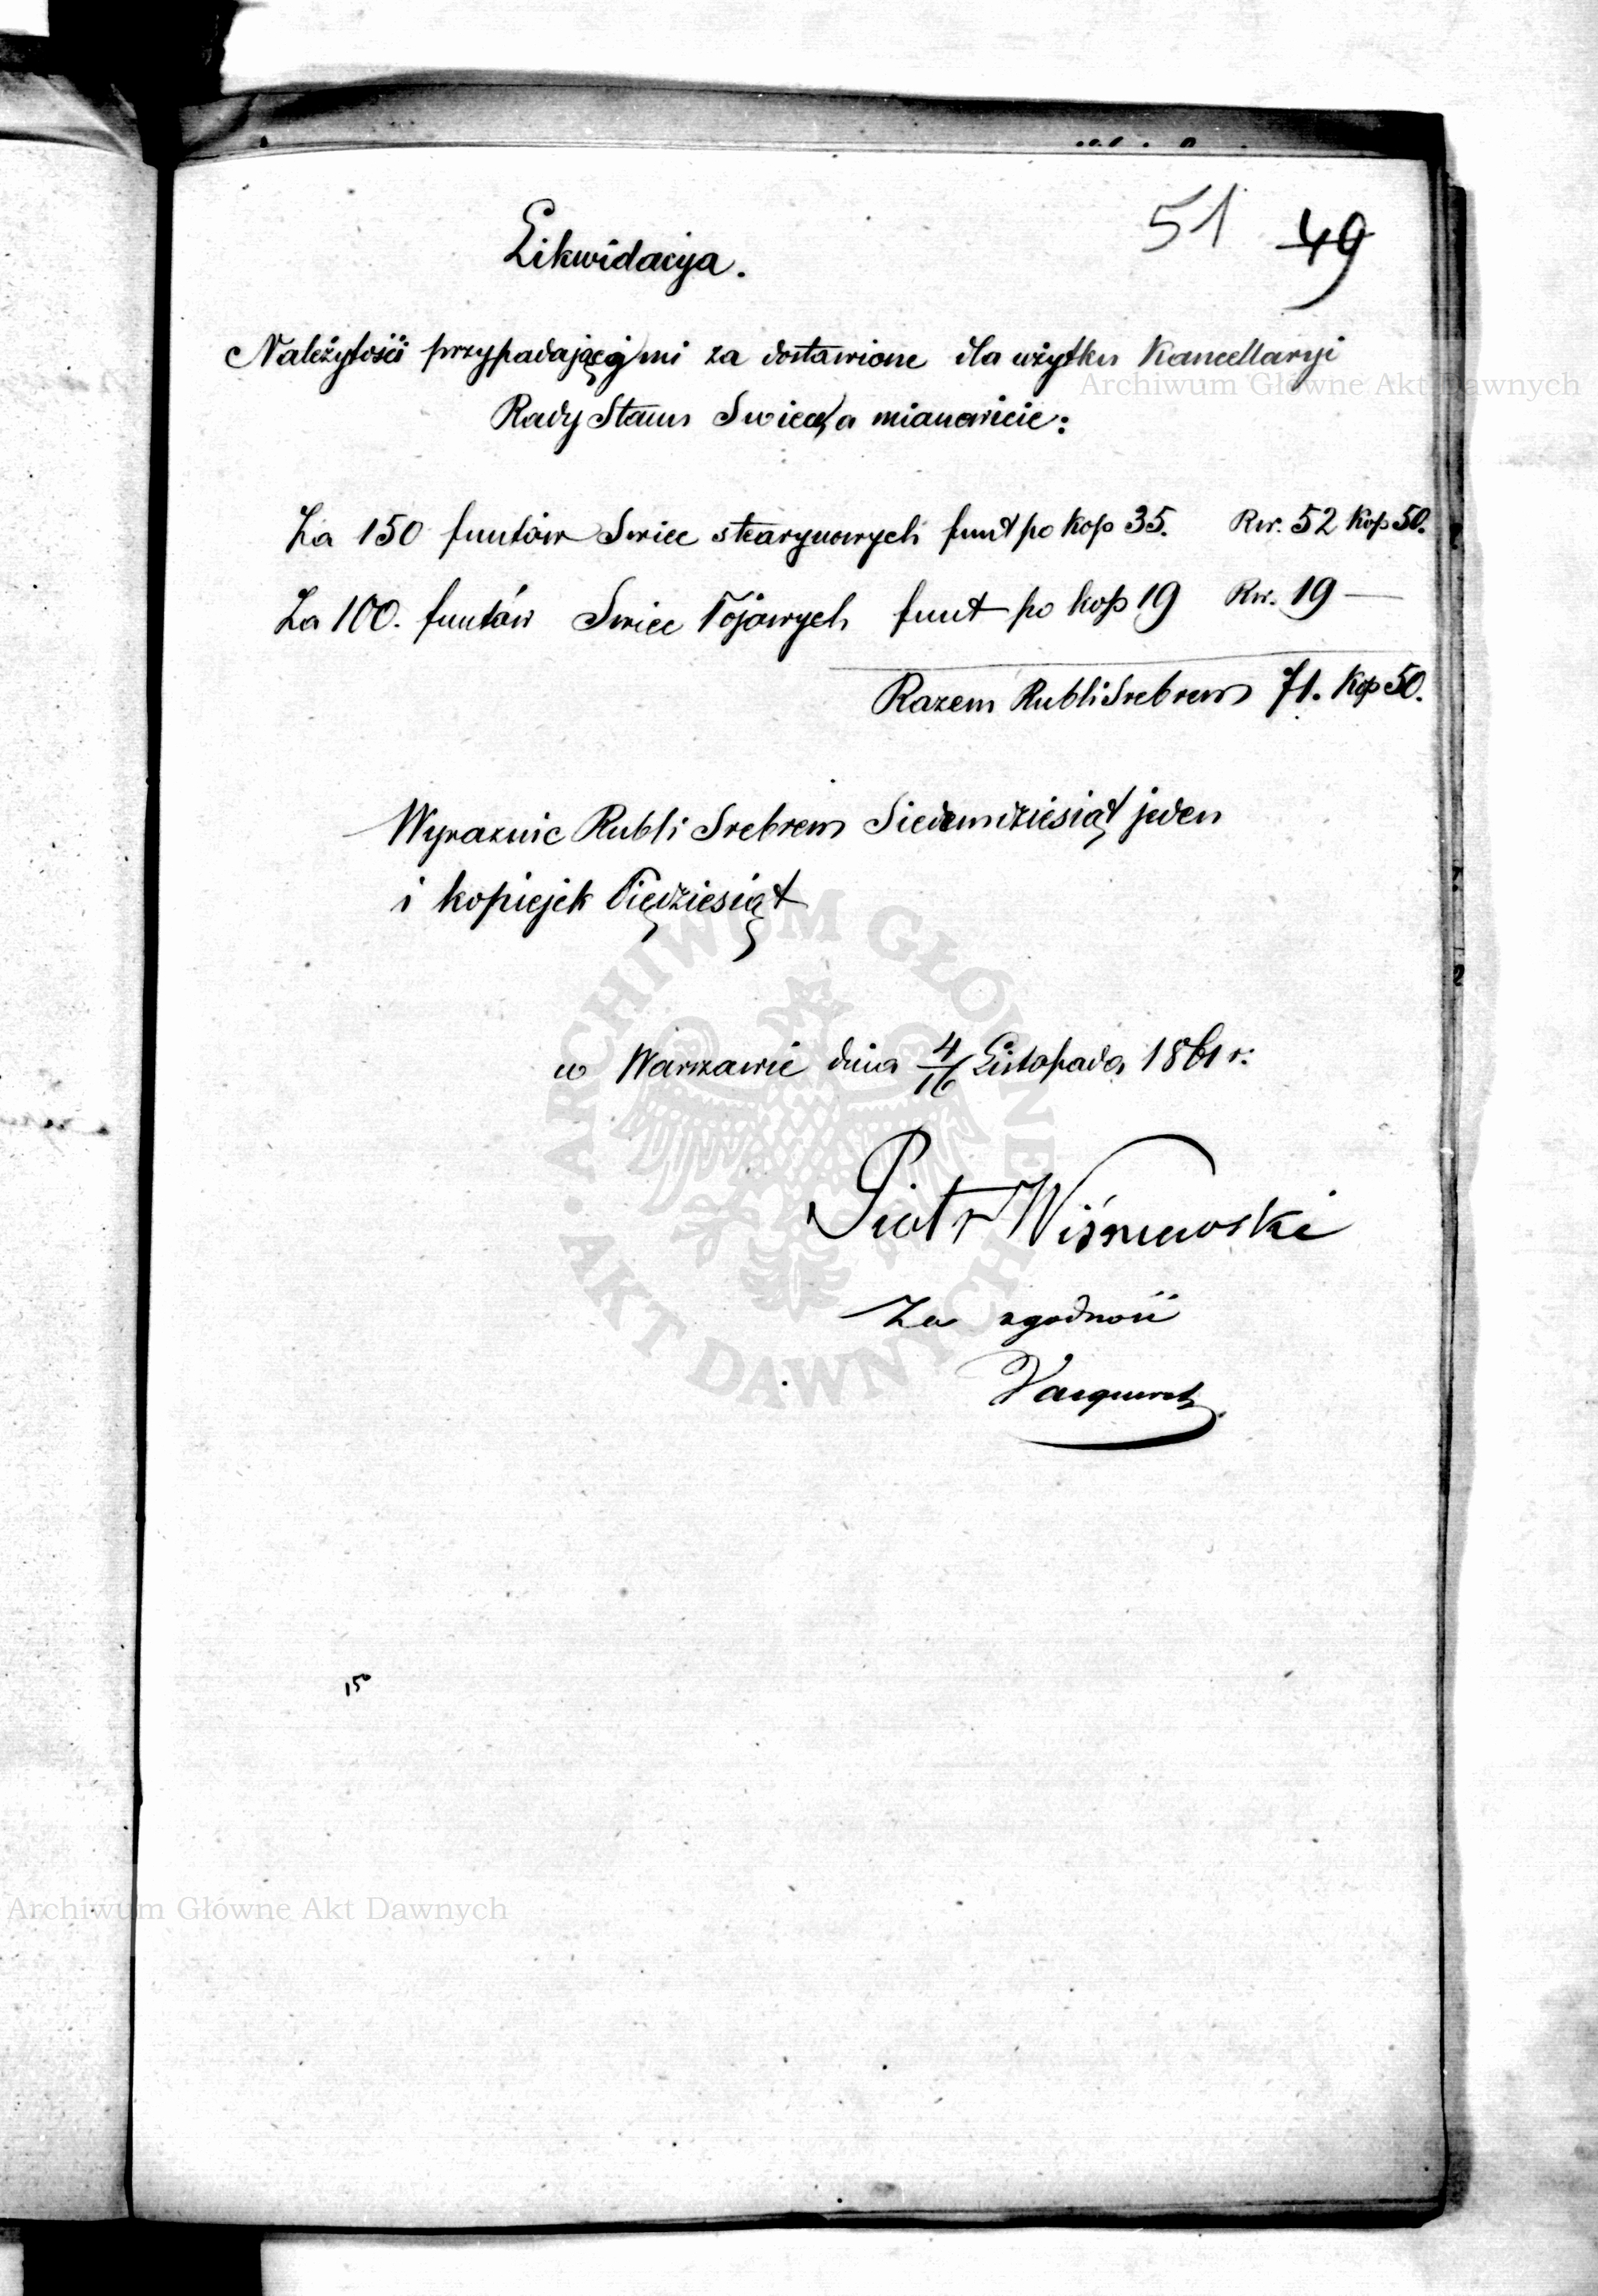 51 49
Likwidacya.
Należytości przypadającéj mi za dostawione dla użytku Kancellaryi
Archiwum Główne Akt Dawnych
Rady Stanu Swiec, a mianowicie:
Za 150 funtów Swiec stearynowych funt po kop 35. Rsr. 52 kop 50.
Za 100. funtów Swiec Łojowych funt po kop 19 Rsr. 19 —
Razem Rubli Srebrem 71. kop 50.
Wyraznie Rubli Srebrem Siedmdziesiąt jeden
i kopiejek Piędziesiąt
w Warszawie dnia 4/16 Listopada 1861 r.
Piotr Wiśniewski
Za zgodność
150
Archiwum Główne Akt Dawnych
ARCHIWUM GŁÓWNE • AKT DAWNYCH •